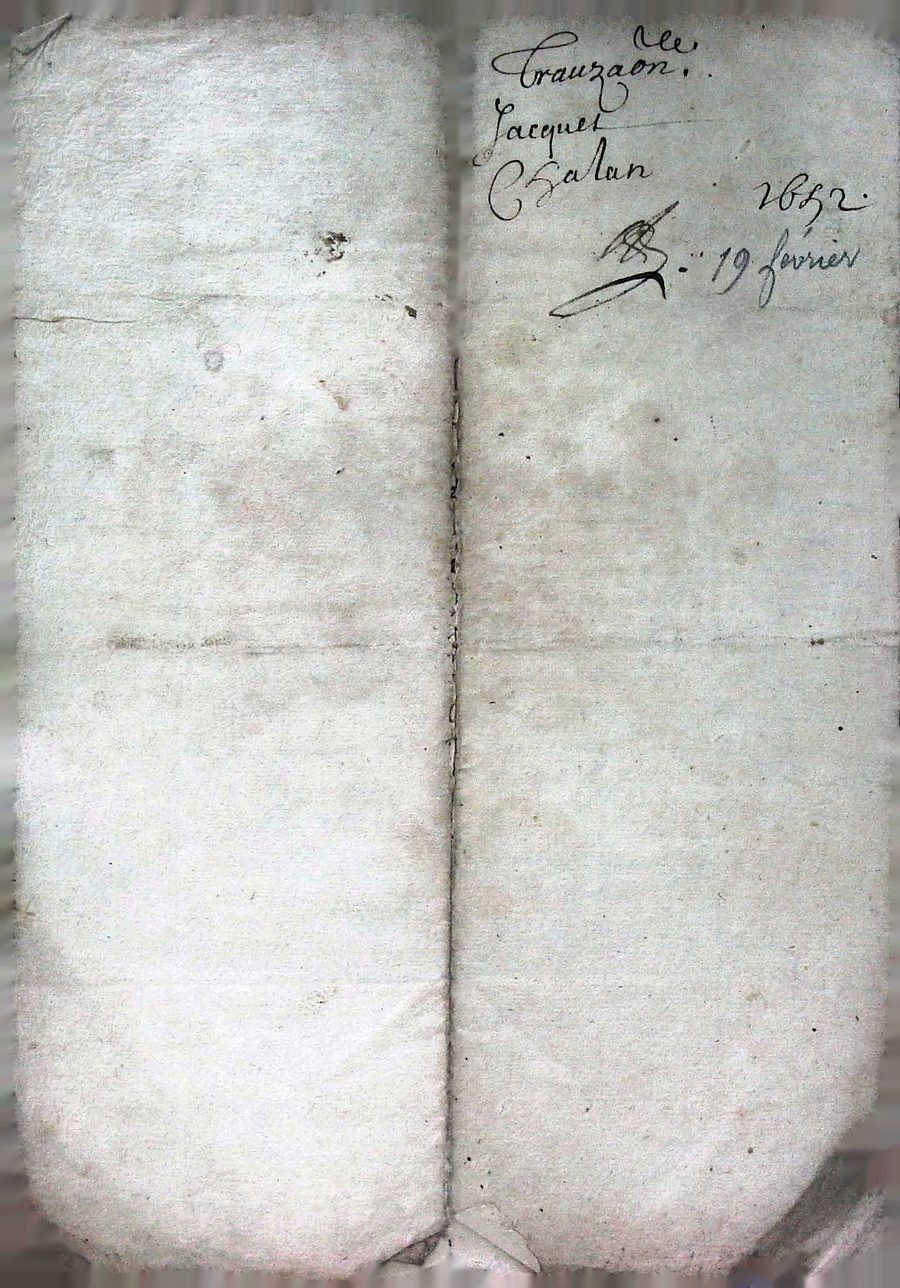 de
Trauzaon.
Jacques
Chalan
1652.
19 février